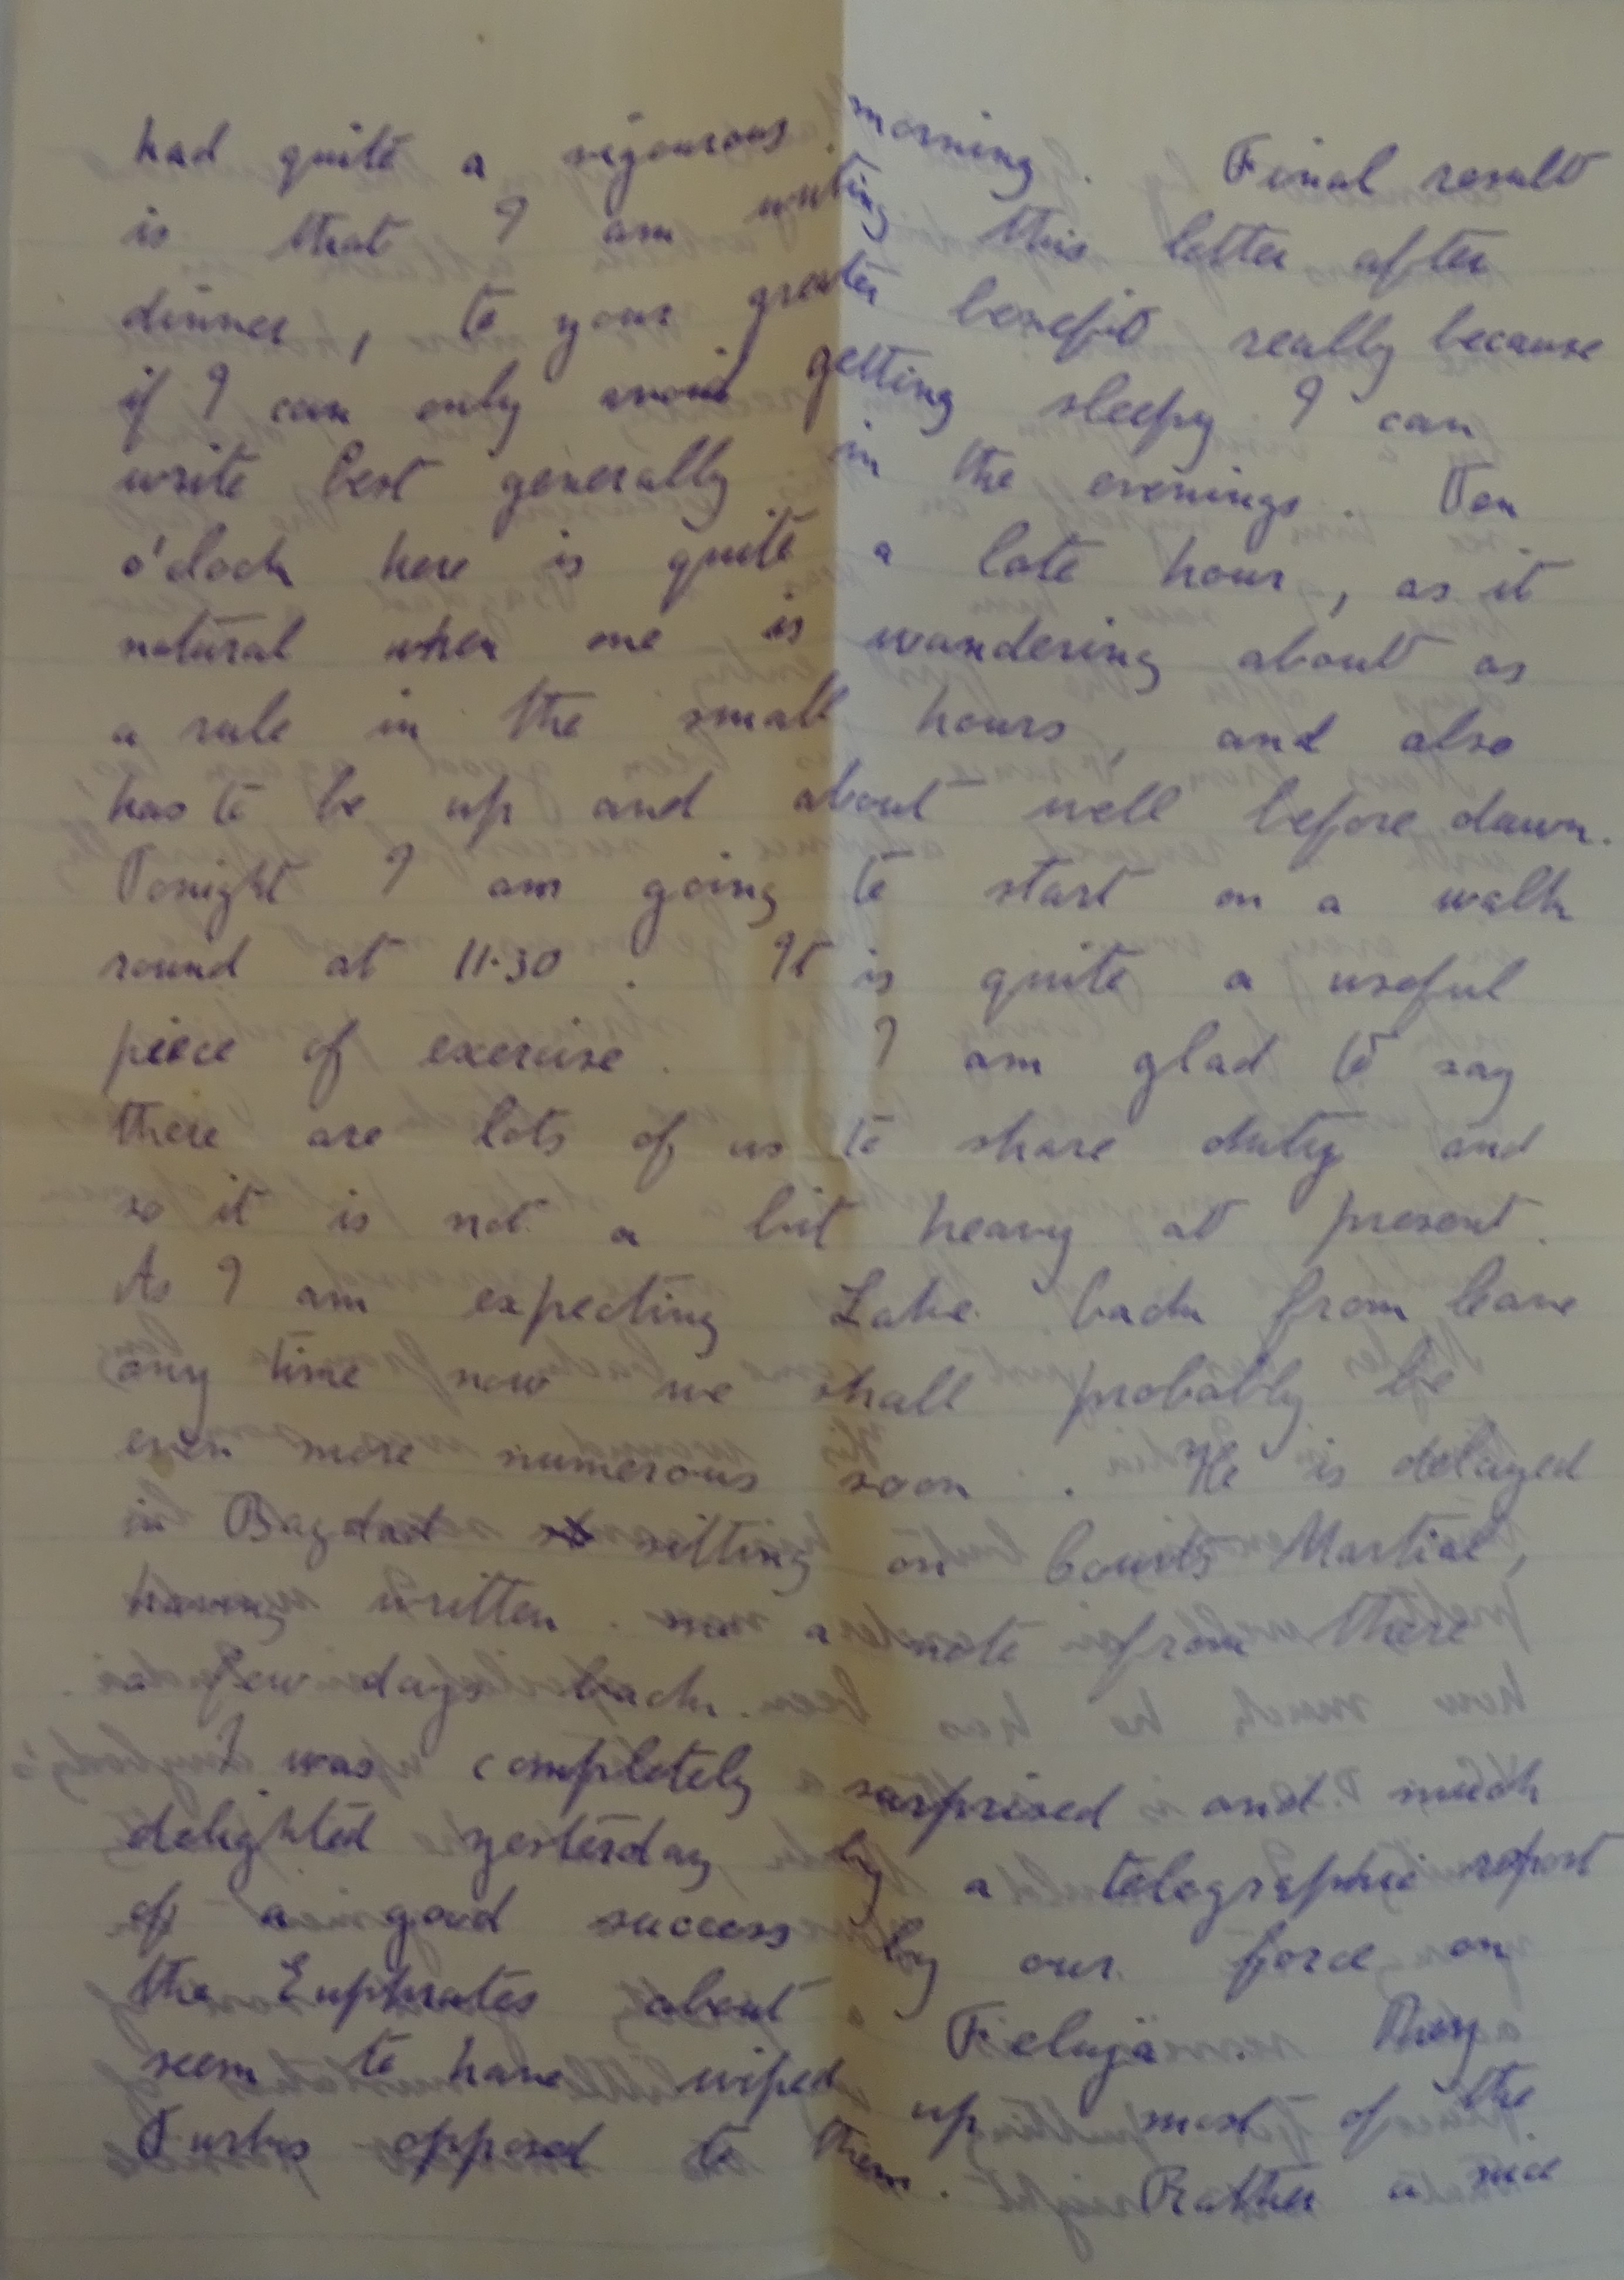 had quite a vigourous morning. Final result
is that I am writing this letter after
dinner, to your greater benefit really because
if I can only avoid getting sleepy I can
write best generally in the evenings. Ten
o'clock here is quite a late hour, as it
natural when one is wandering about as
a rule in the small hours, and also
has to be up and about well before dawn.
Tonight I am going to start on a walk
round at 11.30. It is quite a useful
piece of exercise. I am glad to say
there are lots of us to share duty and
so it is not a bit heavy at present.
As I am expecting Lake back from leave
any time now we shall probably be
even more numerous soon. He is delayed
in Bagdad sitting on Courts Martial,
having written me a note from there
a few days back.
I was completely surprised and much
delighted yesterday by a telegraphic report
of a good success by our force on
the Euphrates about Feluja. They
seem to have wiped up most of the
Turks opposed to them. Rather a nice